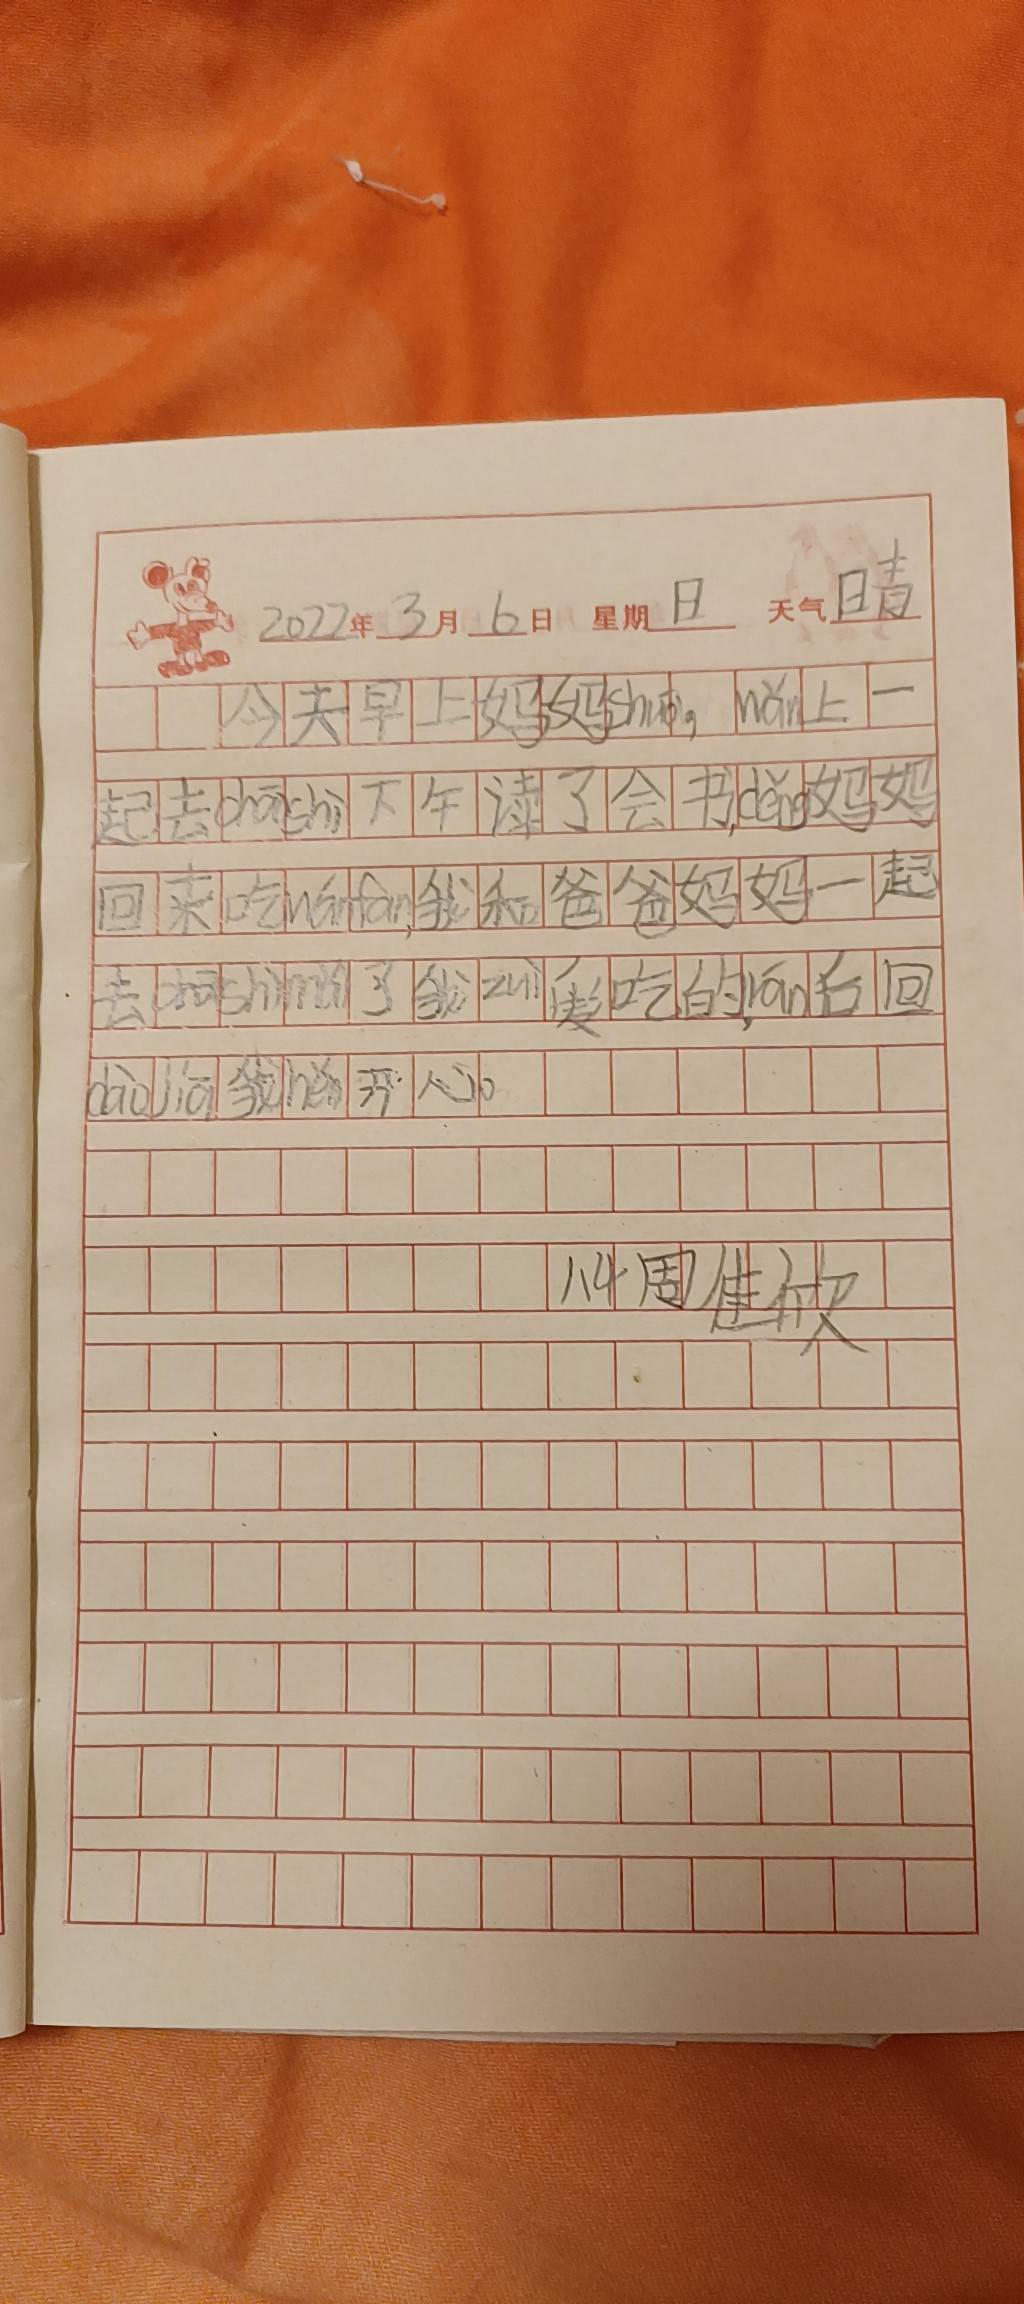 2022年3月6日 星期日 天气晴
今天早上妈妈shuō, wǎn上一
起去chāoshì下午读了会书,děng妈妈
回来吃wánfàn,我和爸爸妈妈一起
去chāoshìmǎi了我zuì爱吃的,rán后回
dàojiā,我hěn开心。
八4周佳欣